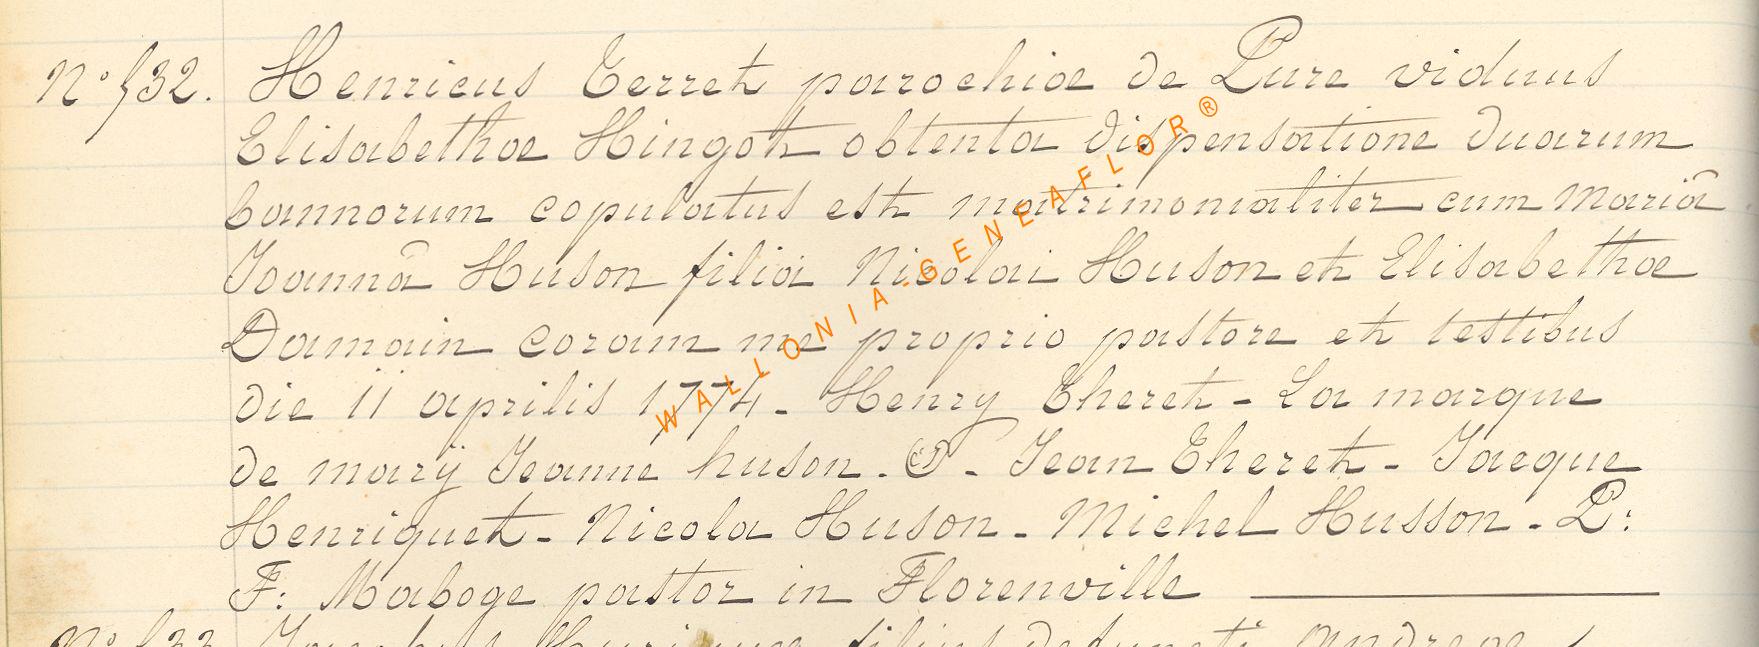 N° 532. Henricus Terret parochiae de Pure viduus
Elisabethae Hingot obtenta dispensatione duarum
bannorum copulatus est matrimonialiter cum Mariâ
Joannâ Huson filiá Nicolai Huson et Elisabethae
Damain coram me proprio pastore et testibus
die 11 aprilis 1774. Henry Theret - La marque
de marÿ Jeanne huson. - Jean Theret - Jacque
Henriquet - Nicola Huson - Michel Husson - P:
F: Maboge pastor in Florenville
N° 533 filius defuncti Andreae
WALLONIA.GENEAFLOR®